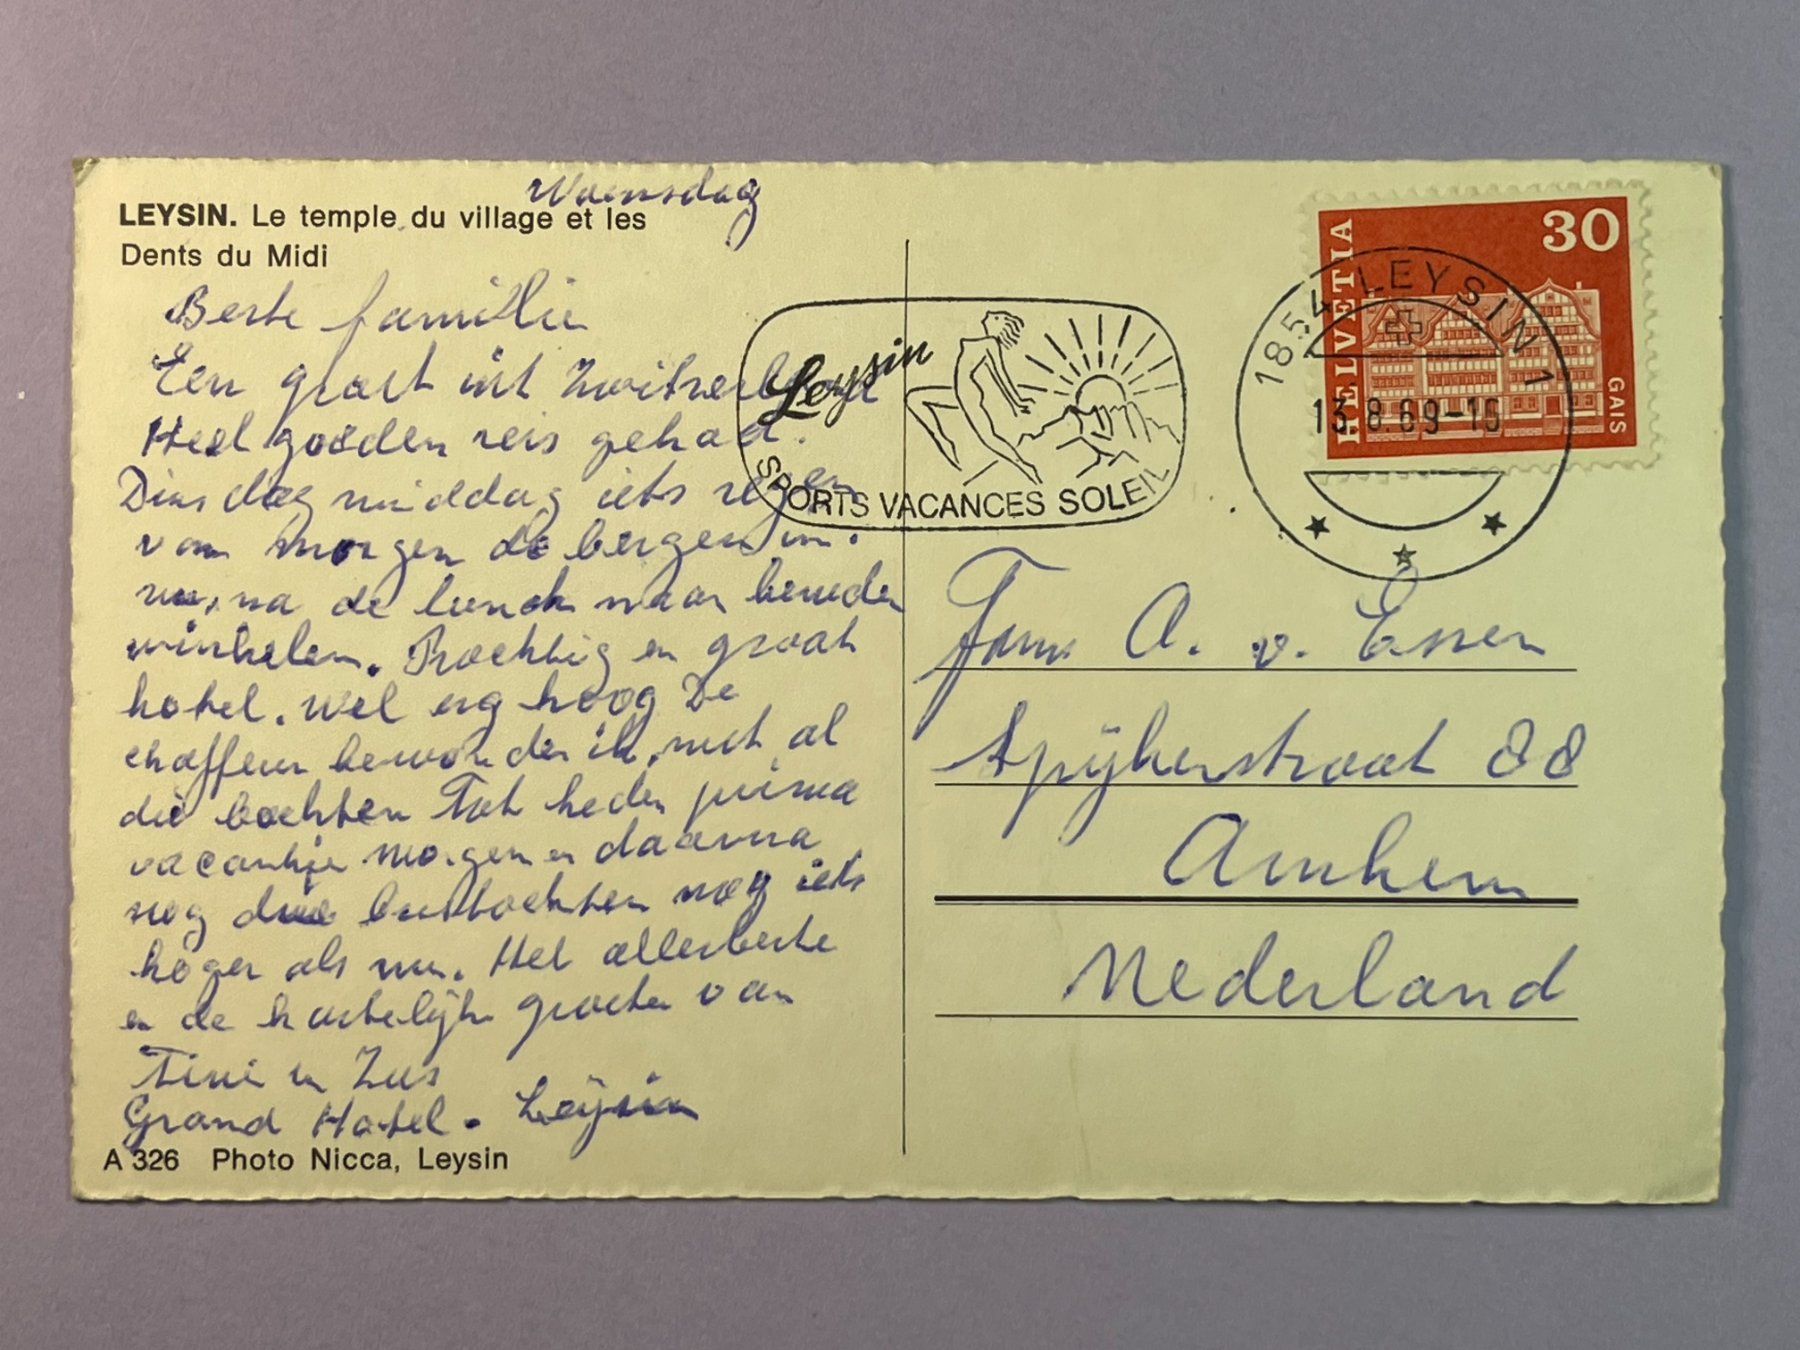 Woensdag
LEYSIN. Le temple du village et les
Dents du Midi
Beste familie
Een groet uit Zwitserland
Heel goeden reis gehad.
Dinsdag middag iets regen
van morgen de bergen in.
nu, na de lunch naar beneden
winkelen. Prachtig en groot
hotel. Wel erg hoog De
chaffeur bewonder ik, met al
die bochten Tot heden prima
vacantie morgen en daarna
nog drie bustochten nog iets
hoger als nu. Het allerbeste
en de hartelijke groeten van
Tini en Zus
Grand Hotel. Leysin
A 326 Photo Nicca, Leysin
Leysin
SPORTS VACANCES SOLEIL
1854 LEYSIN 1
13.8.69-15
HELVETIA
30
GAIS
Fam A. v. Essen
Spijkerstraat 88
Arnhem
Nederland